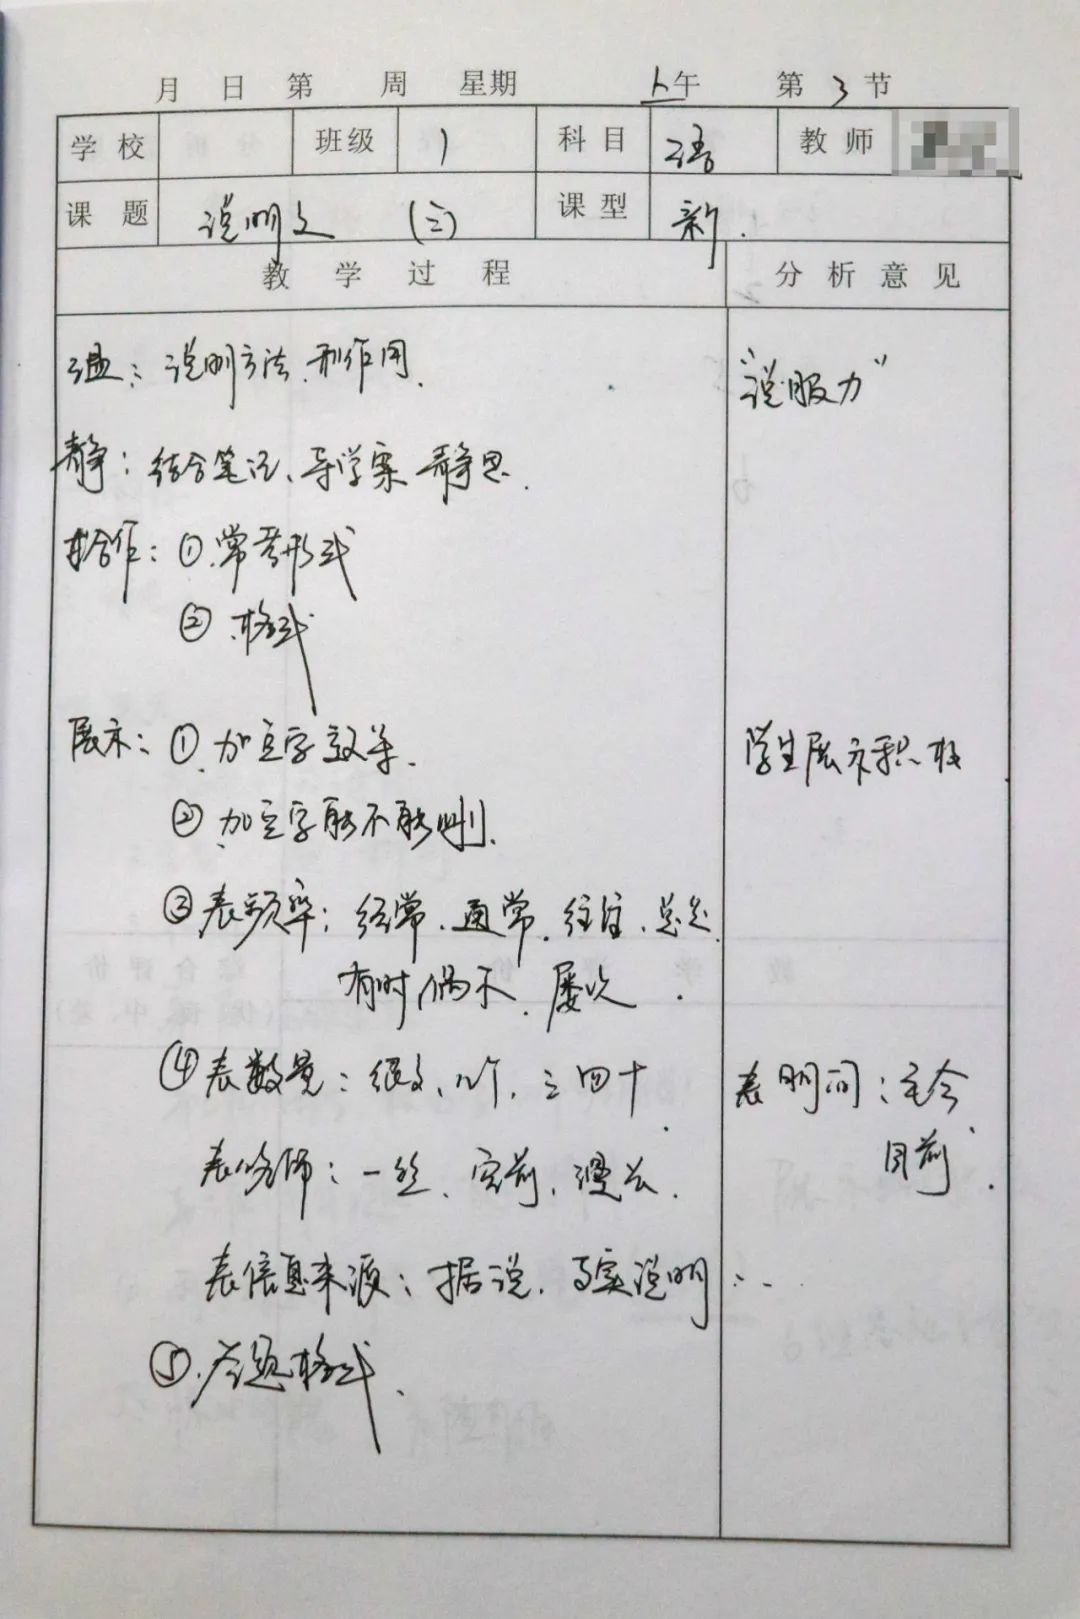 月 日 第 周 星期 上午 第 3 节
学校 班级 1 科目 语 教师
课题 说明文 (三) 课型 新.
教学过程 分析意见
温: 说明方法.和作用. “说服力”
静: 结合笔记、导学案静思.
合作: ① 常考形式
② 格式
展示: ① 加点字效果. 学生展示积极
② 加点字能不能删.
③ 表频率: 经常、通常、往往、总是
有时,偶尔、屡次.
④ 表数量: 很多、几个、三四十. 表时间: 至今、
目前.
表修饰: 一些、空前、漫长.
表信息来源: 据说、事实说明…
⑤.答题格式.